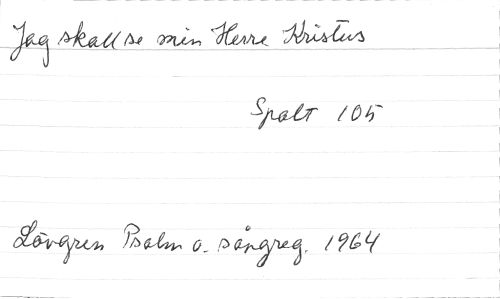 Jag skall se min Herre Kristus
Spalt 105
Lövgren Psalm o. sångreg. 1964